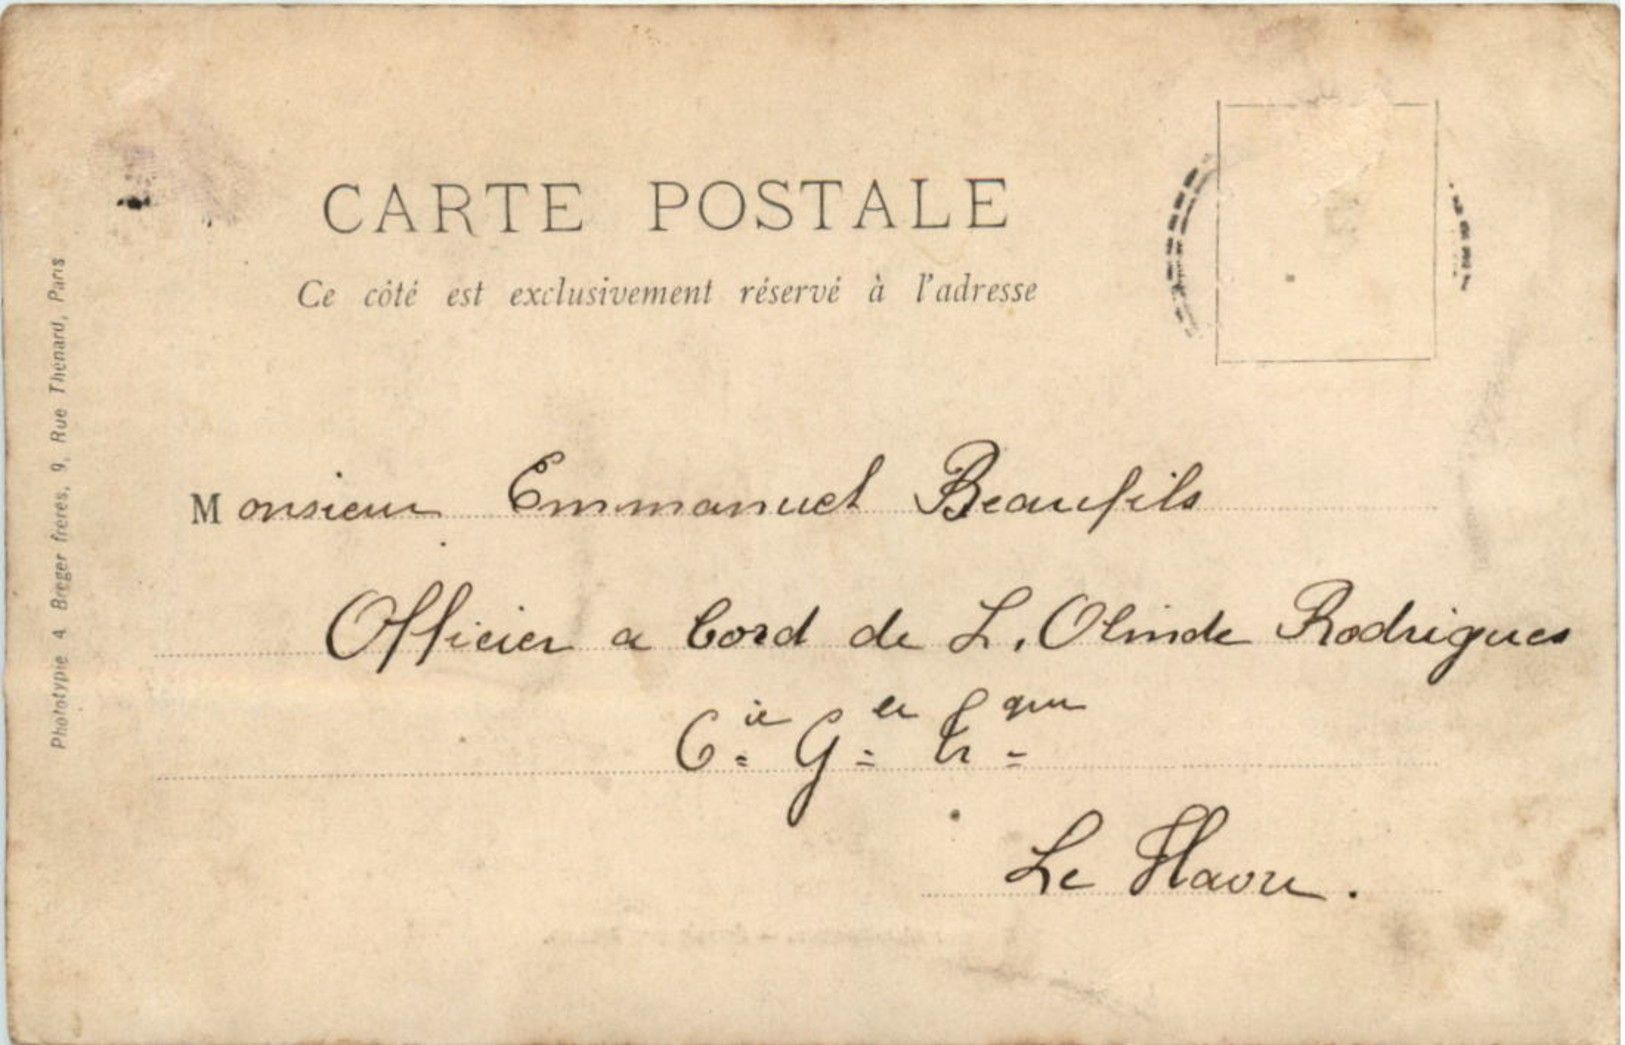 CARTE POSTALE
Ce côté est exclusivement réservé à l'adresse
Monsieur Emmanuel Beaufils
Officier a bord de L. Olinde Rodrigues
Cie Gle Tr que
Le Havre.
Phototypie A Breger frères, 9, Rue Thenard, Paris